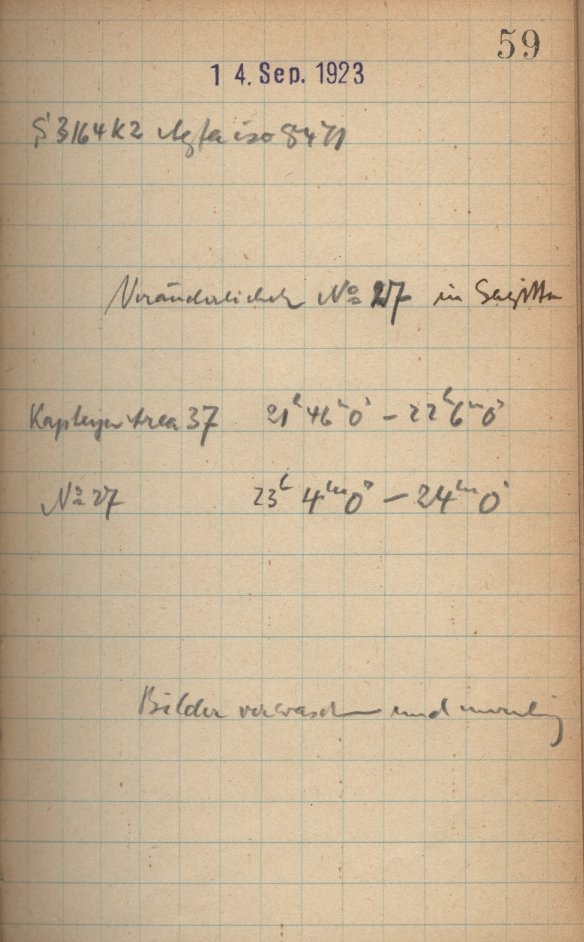 59
14. Sep. 1923
S 3164 K2 Agfa iso 8471
Veränderlicher No 27 in Sagitta
Kapteyn Area 37 21h 46m 0s – 22h 6m 0s
No 27 23h 4m 0s – 24m 0s
Bilder verwaschen und unruhig